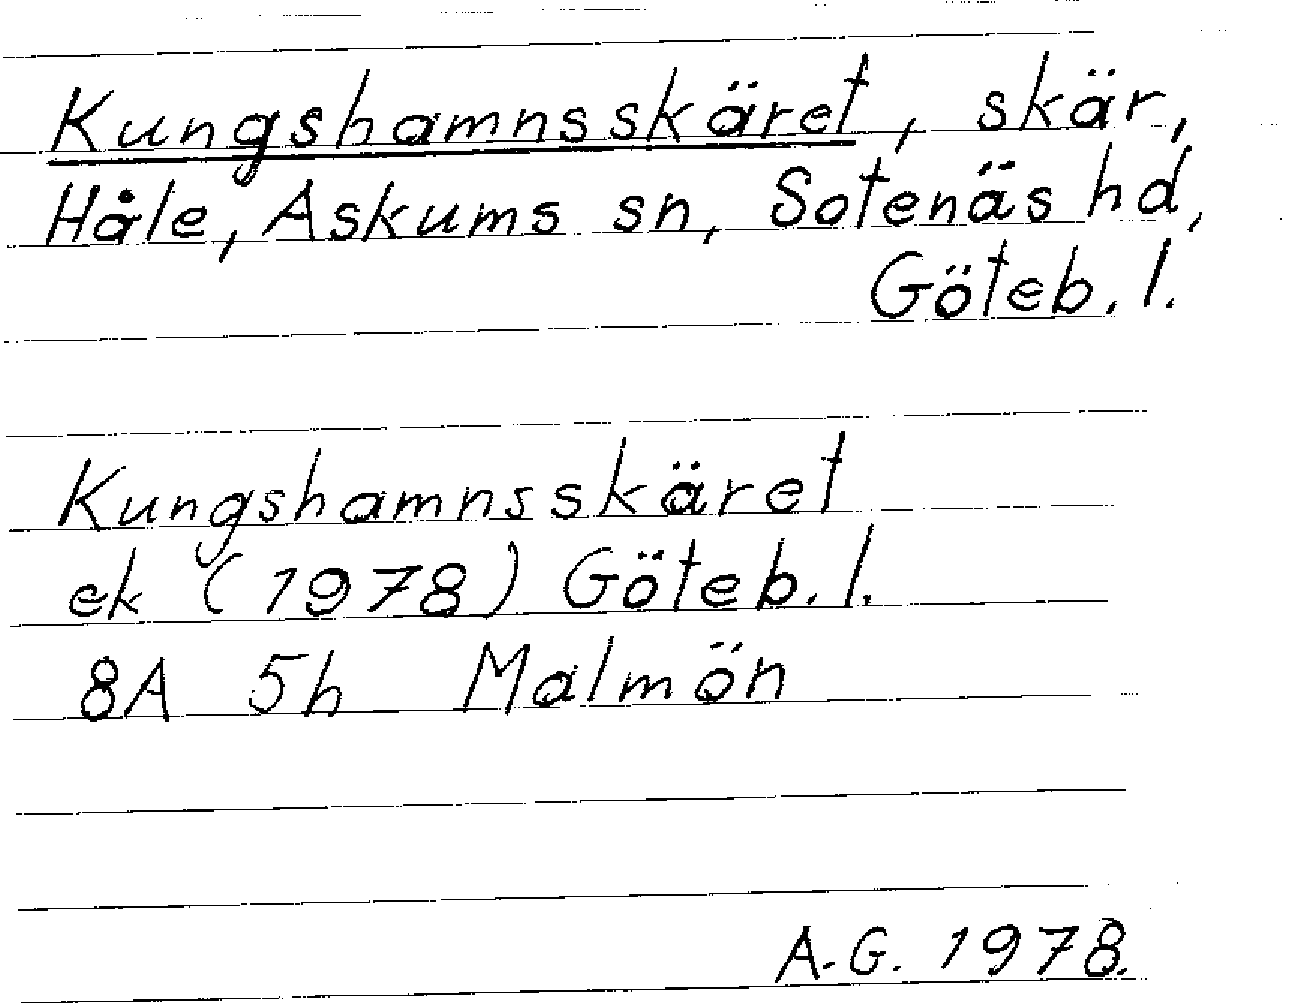 Kungshamnsskäret, skär,
Håle, Askums sn, Sotenäs hd,
Göteb. l.
Kungshamnsskäret
ek (1978) Göteb. l.
8A 5h Malmön
A.G. 1978.